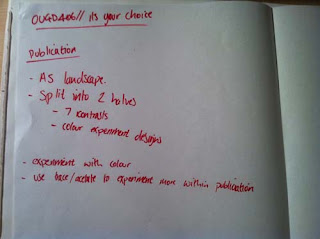 OUGD406// its your choice
Publication
- A5 landscape.
- Split into 2 halves
- 7 contrasts
- colour experiment designs
- experiment with colour
- use trace/acetate to experiment more within publication